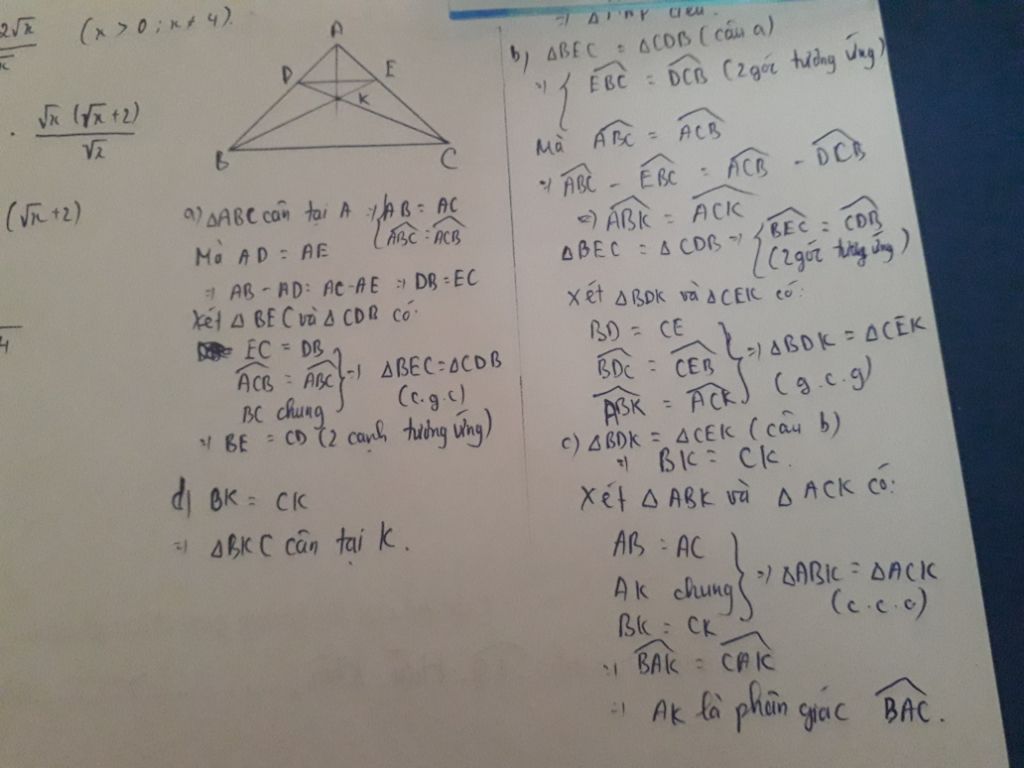 2√x (x > 0 ; x ≠ 4).
. √x (√x + 2)
√x
(√x + 2)
4
A
D E
K
B C
a) △ABC cân tại A => { AB = AC
ABC = ACB
Mà AD = AE
=> AB - AD = AC - AE => DB = EC
Xét △BEC và △CDB có:
EC = DB
ACB = ABC } => △BEC = △CDB
BC chung (c.g.c)
=> BE = CD (2 cạnh tương ứng)
d) BK = CK
=> △BKC cân tại K.
b) △BEC = △CDB (câu a)
=> { EBC = DCB (2 góc tương ứng)
Mà ABC = ACB
=> ABC - EBC = ACB - DCB
=> ABK = ACK
△BEC = △CDB => { BEC = CDB
(2 góc tương ứng)
Xét △BDK và △CEK có:
BD = CE
BDC = CEB } => △BDK = △CEK
ABK = ACK (g.c.g)
c) △BDK = △CEK (câu b)
=> BK = CK.
Xét △ABK và △ACK có:
AB = AC
AK chung } => △ABK = △ACK
BK = CK (c.c.c)
=> BAK = CAK
=> AK là phân giác BAC.